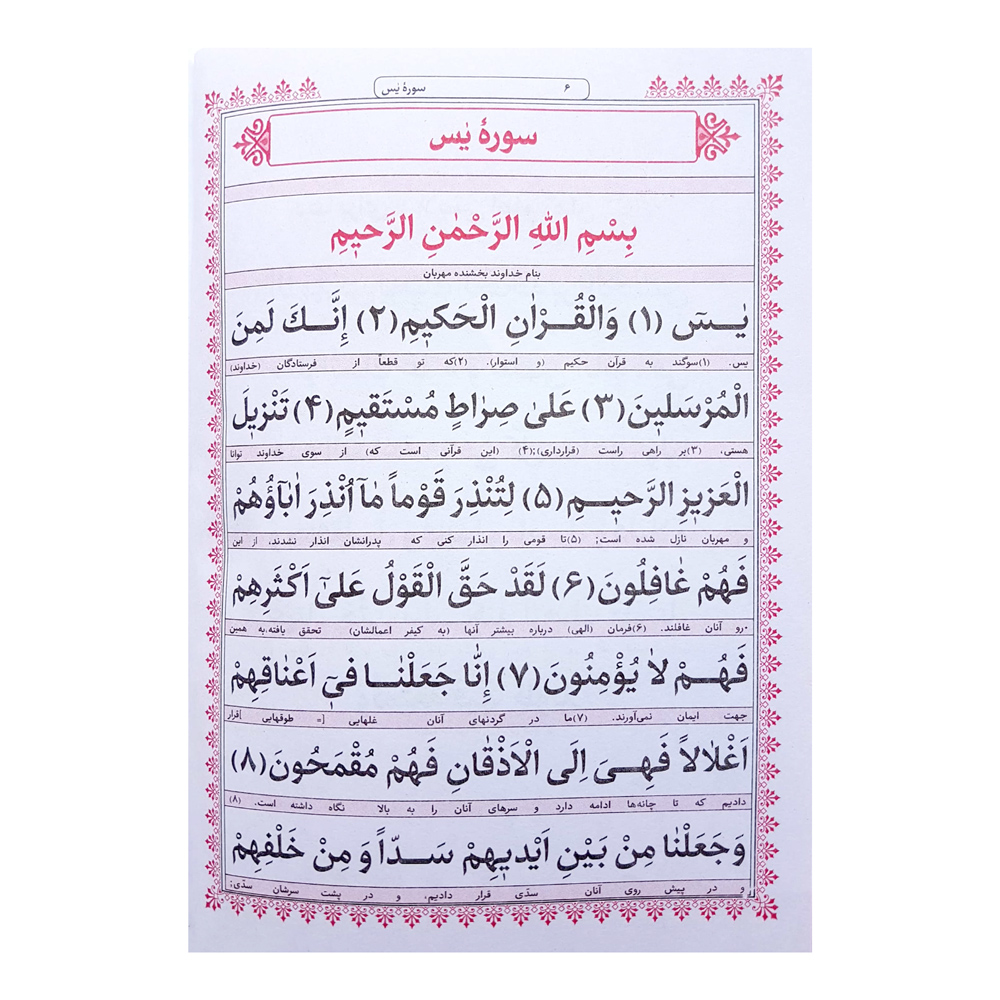 سورهٔ یٰس ۶
سورهٔ یٰس
بِسْمِ اللهِ الرَّحْمٰنِ الرَّحیٖمِ
بنام خداوند بخشنده مهربان
یٰــسٓ (۱) وَالْقُــرْاٰنِ الْحَکیٖمِ(۲) إِنَّــكَ لَمِنَ
یس. (۱)سوگند به قرآن حکیم (و استوار). (۲)که تو قطعاً از فرستادگان (خداوند)
الْمُرْسَلیٖنَ(۳) عَلیٰ صِرٰاطٍ مُسْتَقیٖمٍ(۴) تَنْزیٖلَ
هستی، (۳)بر راهی راست (قرارداری)؛(۴) (این قرآنی است که) از سوی خداوند توانا
الْعَزیٖزِ الرَّحیٖــمِ (۵) لِتُنْذِرَ قَوْماً مٰٓا اُنْذِرَ اٰبٰٓاؤُهُمْ
و مهربان نازل شده است؛ (۵)تا قومی را انذار کنی که پدرانشان انذار نشدند، از این
فَهُمْ غٰافِلُونَ(۶) لَقَدْ حَقَّ الْقَوْلُ عَلیٰٓ اَکْثَرِهِمْ
رو آنان غافلند. (۶)فرمان (الهی) درباره بیشتر آنها (به کیفر اعمالشان) تحقق یافته،به همین
فَهُــمْ لاٰ یُؤْمِنُونَ(۷) إِنّٰا جَعَلْنٰــا فیٖٓ اَعْنٰاقِهِمْ
جهت ایمان نمی‌آورند. (۷)ما در گردنهای آنان غلهایی [= طوقهایی ]قرار
اَغْلاٰلاً فَهِــیَ اِلَی الْاَذْقٰانِ فَهُمْ مُقْمَحُونَ(۸)
دادیم که تا چانه‌ها ادامه دارد و سرهای آنان را به بالا نگاه داشته است. (۸)
وَجَعَلْنٰا مِنْ بَیْنِ اَیْدیٖهِمْ سَــدّاً وَ مِنْ خَلْفِهِمْ
و در پیش روی آنان سدّی قرار دادیم، و در پشت سرشان سدّی؛